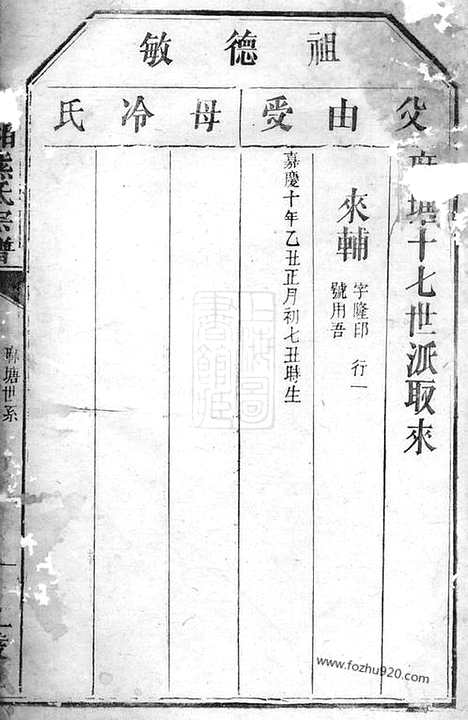 祖德敏
父由受母冷氏
塘十七世派取來
來輔 字隆印 行一
號用吾
嘉慶十年乙丑正月初七丑時生
氏宗譜
聯塘世系
www.fozhu920.com